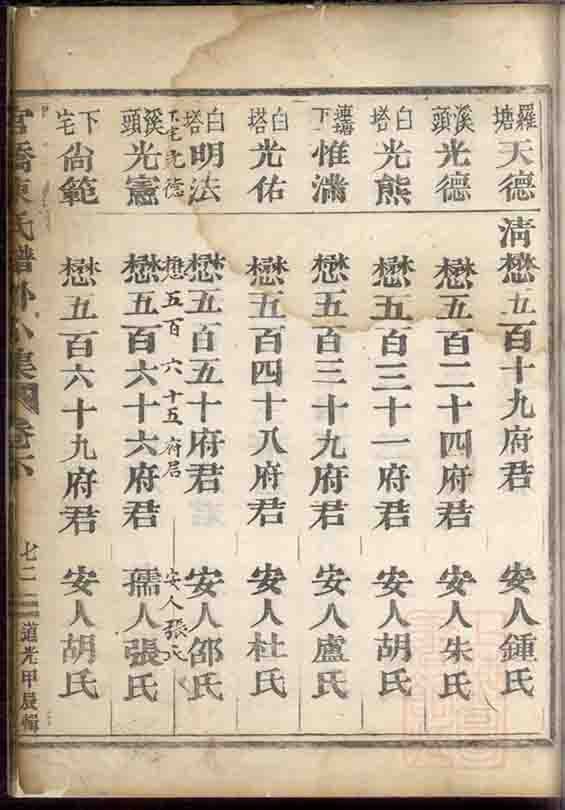 羅塘 天德 清懋五百十九府君 安人鍾氏
溪頭 光德 懋五百二十四府君 安人朱氏
白塔 光熊 懋五百三十一府君 安人胡氏
下 惟滿 懋五百三十九府君 安人盧氏
白塔 光佑 懋五百四十八府君 安人杜氏
白塔 明法 懋五百五十府君 安人邵氏
下宅 光德 懋五百六十五府君 安人張氏
溪頭 光憲 懋五百六十六府君 孺人張氏
下宅 尙範 懋五百六十九府君 安人胡氏
氏譜外 集 卷 七二 道光甲辰輯